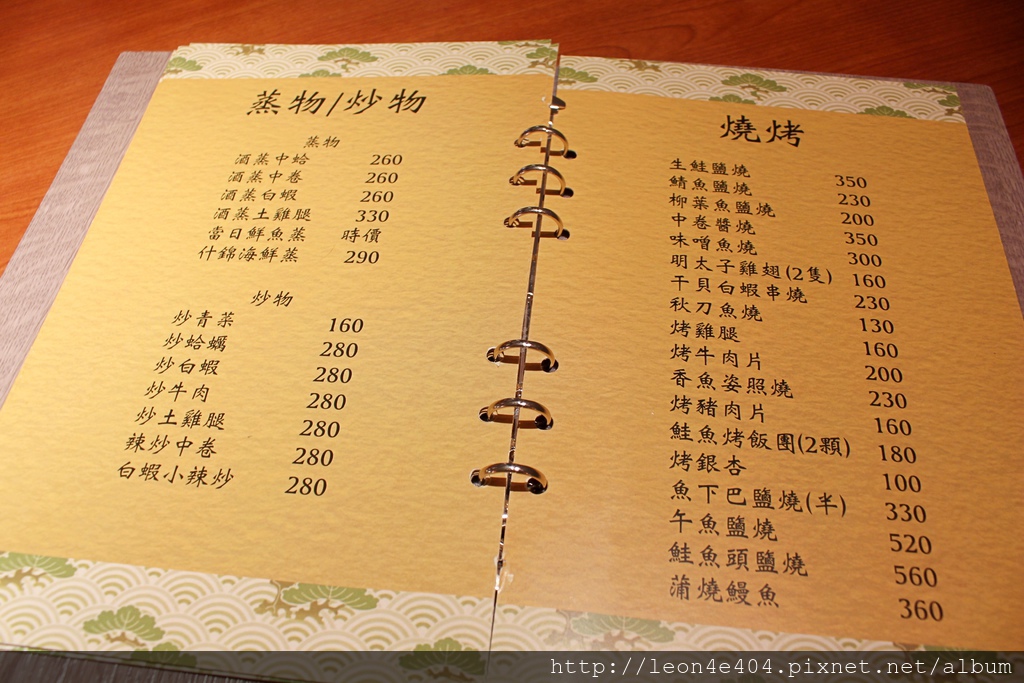 蒸物/炒物
蒸物
酒蒸中蛤 260
酒蒸中卷 260
酒蒸白蝦 260
酒蒸土雞腿 330
當日鮮魚蒸 時價
什錦海鮮蒸 290
炒物
炒青菜 160
炒蛤蠣 280
炒白蝦 280
炒牛肉 280
炒土雞腿 280
辣炒中卷 280
白蝦小辣炒 280
燒烤
生鮭鹽燒 350
鯖魚鹽燒 230
柳葉魚鹽燒 200
中卷醬燒 350
味噌魚燒 300
明太子雞翅(2隻) 160
干貝白蝦串燒 230
秋刀魚燒 130
烤雞腿 160
烤牛肉片 200
香魚姿照燒 230
烤豬肉片 160
鮭魚烤飯團(2顆) 180
烤銀杏 100
魚下巴鹽燒(半) 330
午魚鹽燒 520
鮭魚頭鹽燒 560
蒲燒鰻魚 360
http://leon4e404.pixnet.net/album